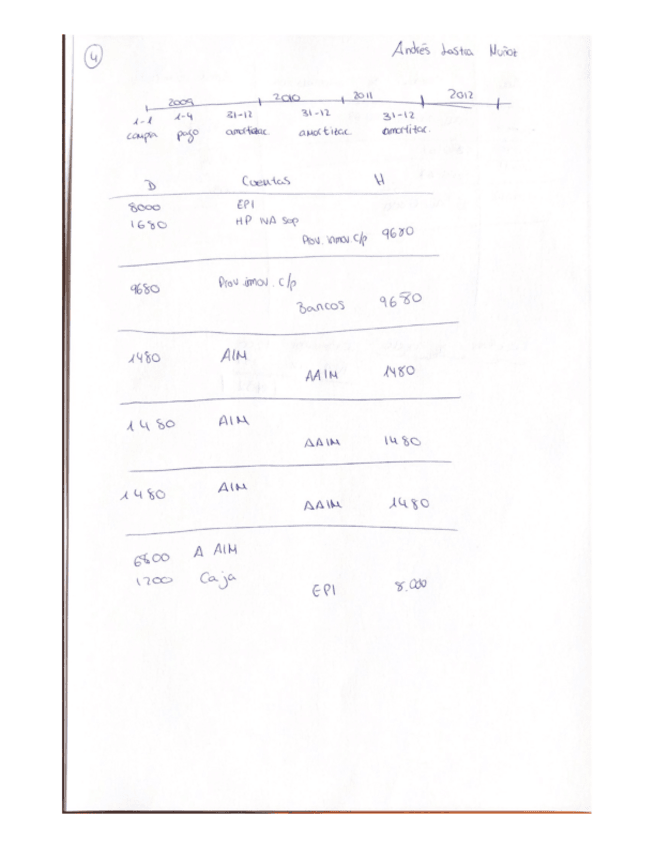 4
Andrés Lastra Muñoz
2009 2010 2011 2012
1-1 1-4 31-12 31-12 31-12
compra pago amortizac amortizac. amortizac.
D Cuentas H
8000 EPI
1680 HP IVA sop
Prov. inmov c/p 9680
9680 Prov. inmov. c/p
Bancos 9680
1480 AIM
AAIM 1480
1480 AIM
AAIM 1480
1480 AIM
AAIM 1480
6800 A AIM
1200 Caja
EPI 8.000